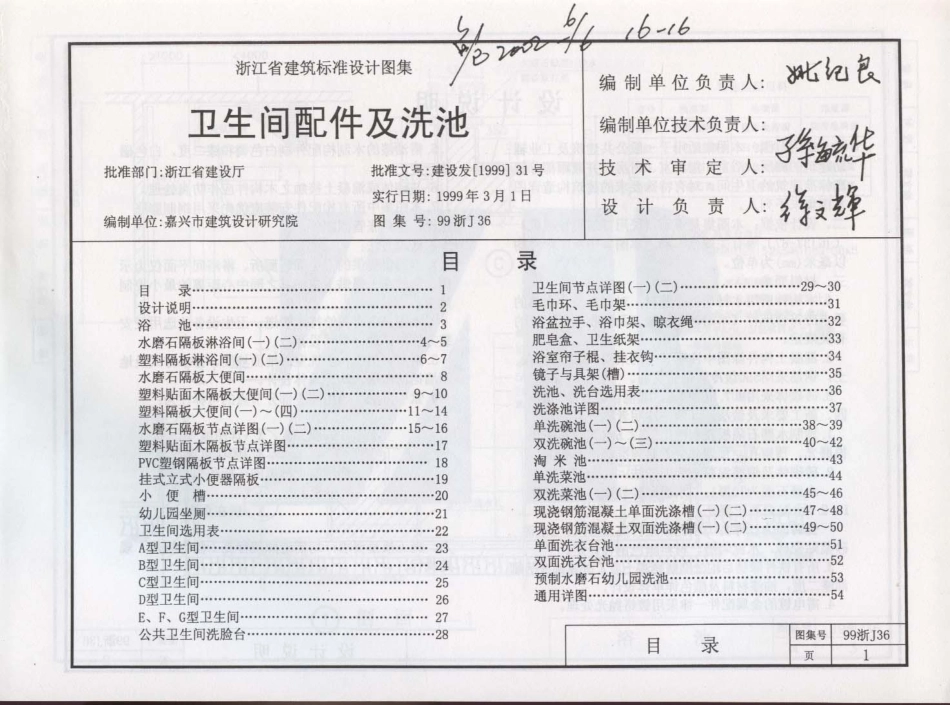 2002 6/6 16-16
浙江省建筑标准设计图集
卫生间配件及洗池
批准部门:浙江省建设厅
批准文号:建设发[1999] 31号
实行日期: 1999年3月1日
编制单位:嘉兴市建筑设计研究院
图 集 号: 99浙J36
编制单位负责人: 姚纪良
编制单位技术负责人:
技术审定人:
设计负责人: 徐文辉
目 录
目 录 1
设计说明 2
浴 池 3
水磨石隔板淋浴间(一)(二) 4~5
塑料隔板淋浴间(一)(二) 6~7
水磨石隔板大便间 8
塑料贴面木隔板大便间(一)(二) 9~10
塑料隔板大便间(一)~(四) 11~14
水磨石隔板节点详图(一)(二) 15~16
塑料贴面木隔板节点详图 17
PVC塑钢隔板节点详图 18
挂式立式小便器隔板 19
小 便 槽 20
幼儿园坐厕 21
卫生间选用表 22
A型卫生间 23
B型卫生间 24
C型卫生间 25
D型卫生间 26
E、F、G型卫生间 27
公共卫生间洗脸台 28
卫生间节点详图(一)(二) 29~30
毛巾环、毛巾架 31
浴盆拉手、浴巾架、晾衣绳 32
肥皂盒、卫生纸架 33
浴室帘子棍、挂衣钩 34
镜子与具架(槽) 35
洗池、洗台选用表 36
洗涤池详图 37
单洗碗池(一)(二) 38~39
双洗碗池(一)~(三) 40~42
淘 米 池 43
单洗菜池 44
双洗菜池(一)(二) 45~46
现浇钢筋混凝土单面洗涤槽(一)(二) 47~48
现浇钢筋混凝土双面洗涤槽(一)(二) 49~50
单面洗衣台池 51
双面洗衣台池 52
预制水磨石幼儿园洗池 53
通用详图 54
目 录
图集号 99浙J36
页 1